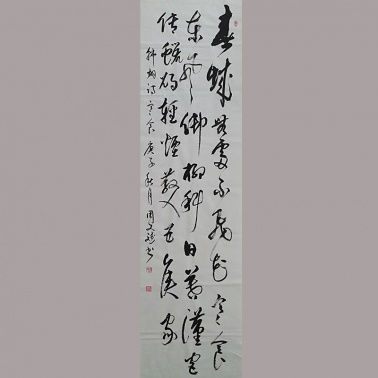 春城無處不飛花寒食
東風御柳斜日暮漢宮
传蠟燭輕煙散入五侯家
韩翃诗寒食庚子秋月周文书